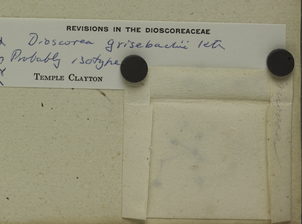 REVISIONS IN THE DIOSCOREACEAE
Dioscorea grisebachii
Probably isotype
TEMPLE CLAYTON